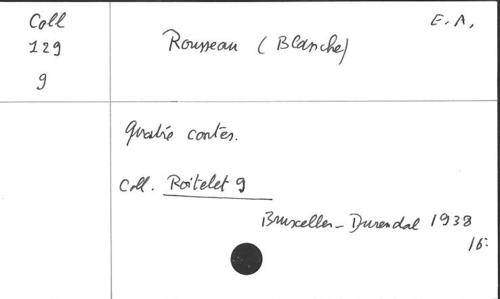 Coll
129
9
Rousseau (Blanche)
E.A.
Quatre contes.
Coll. Roitelet 9
Bruxelles - Durendal 1938
16: